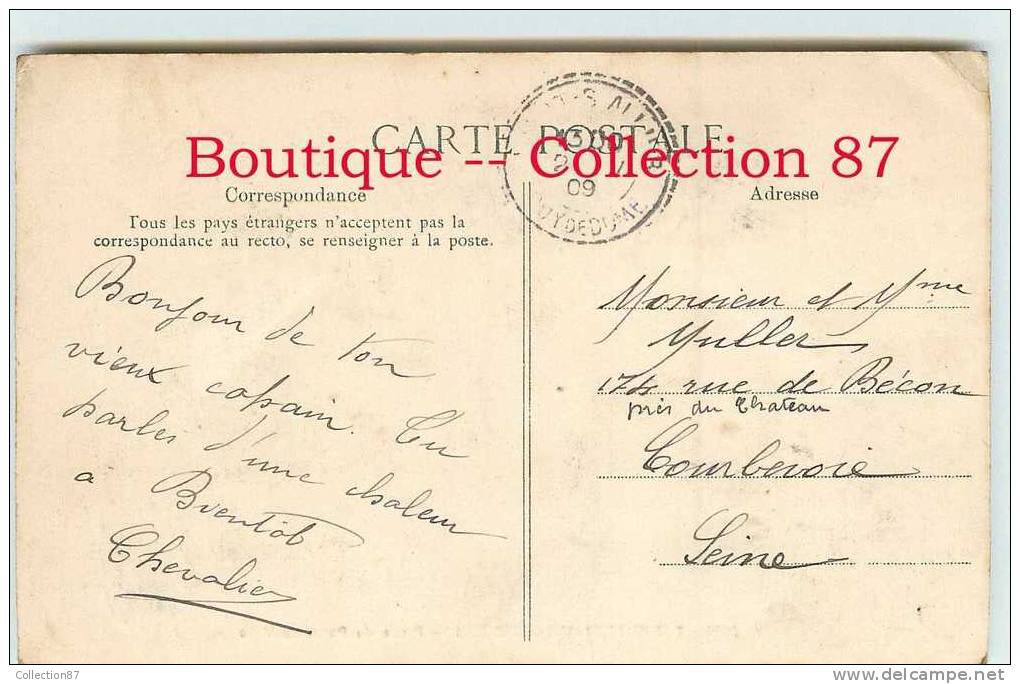 CARTE POSTALE
Boutique -- Collection 87
Correspondance
Tous les pays étrangers n'acceptent pas la
correspondance au recto, se renseigner à la poste.
Adresse
09
PUY DE DOME
Bonjour de ton
vieux copain. Tu
parles d'une chaleur
à Bientôt
Chevalier
Monsieur et Mme
Muller
174 rue de Bécon
près du Chateau
Courbevoie
Seine
Collection87
www.delcampe.net